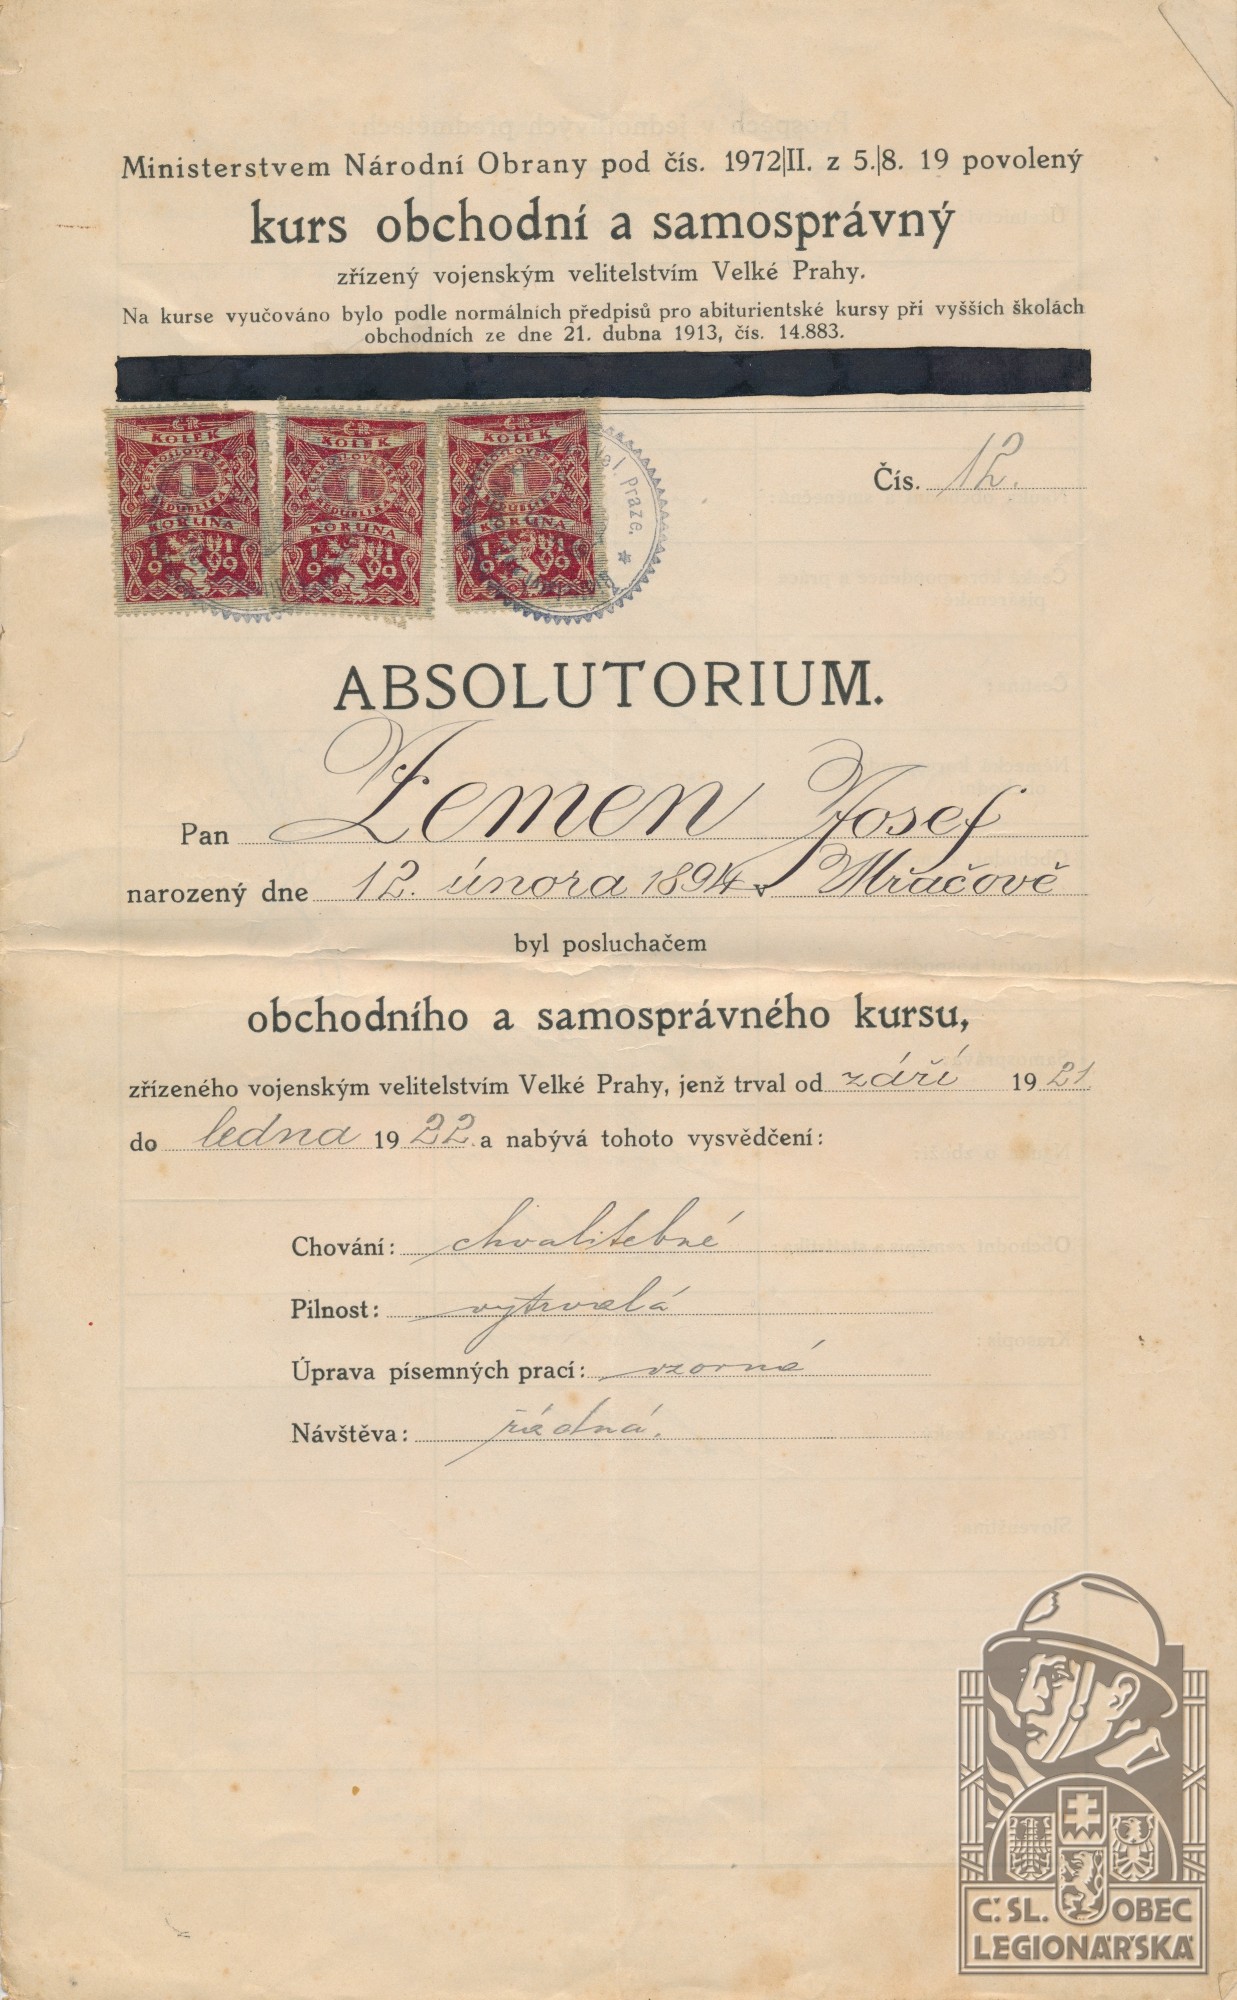 Ministerstvem Národní Obrany pod čís. 1972|II. z 5.|8. 19 povolený
kurs obchodní a samosprávný
zřízený vojenským velitelstvím Velké Prahy.
Na kurse vyučováno bylo podle normálních předpisů pro abiturientské kursy při vyšších školách
obchodních ze dne 21. dubna 1913, čís. 14.883.
ČR KOLEK ČESKOSLOVENSKÁ 1 REPUBLIKA KORUNA 1919
ČR KOLEK ČESKOSLOVENSKÁ 1 REPUBLIKA KORUNA 1919
ČR KOLEK ČESKOSLOVENSKÁ 1 REPUBLIKA KORUNA 1919
Vel. Praze.
Čís. 12.
ABSOLUTORIUM.
Pan Zemen Josef
narozený dne 12. února 1894 v Mračově
byl posluchačem
obchodního a samosprávného kursu,
zřízeného vojenským velitelstvím Velké Prahy, jenž trval od září 1921
do ledna 1922 a nabývá tohoto vysvědčení:
Chování: chvalitebné
Pilnost: vytrvalá
Úprava písemných prací: vzorná
Návštěva: řádná.
Č. SL. OBEC
LEGIONÁRSKÁ